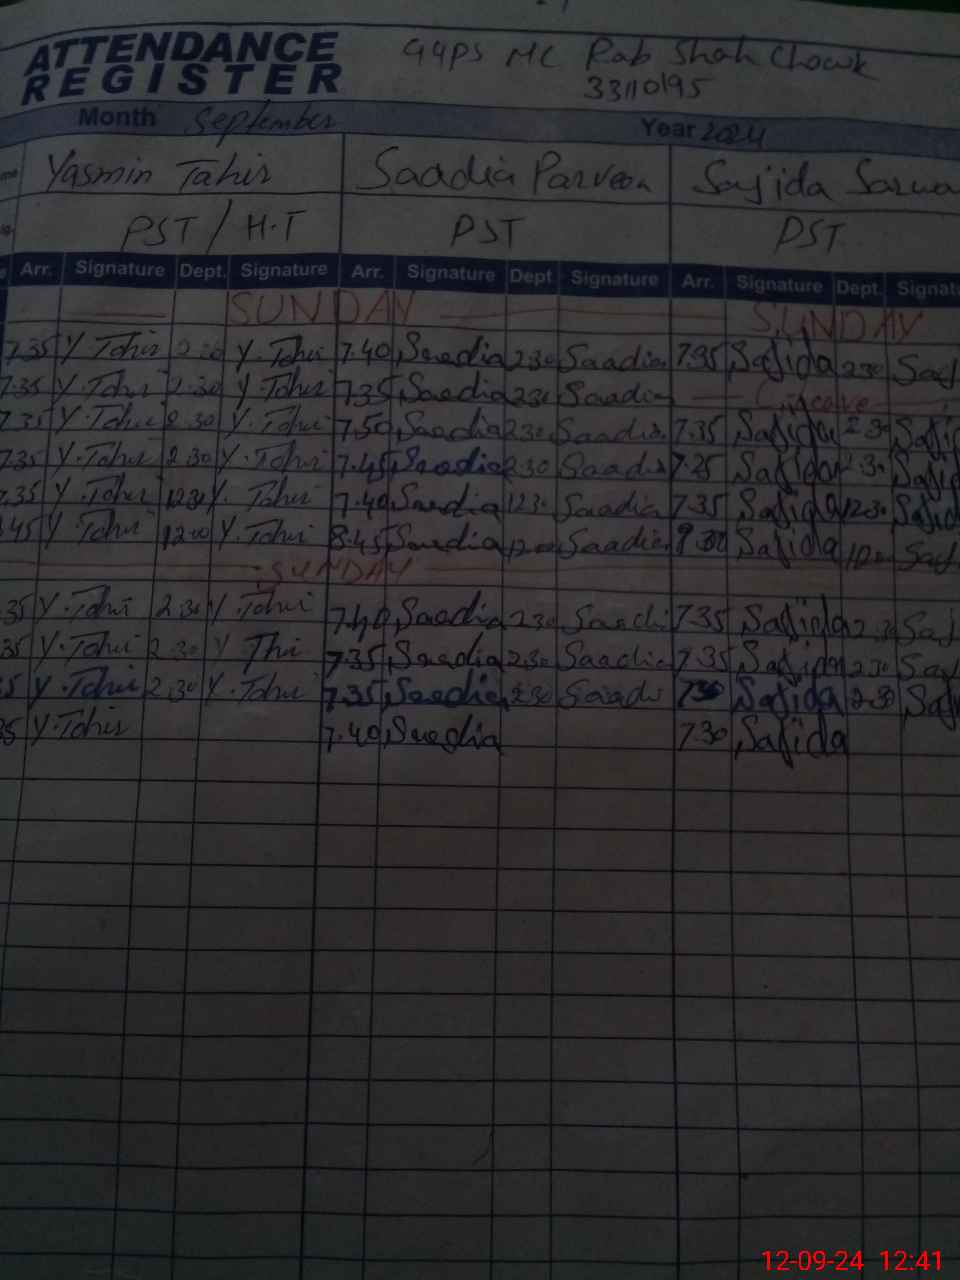 ATTENDANCE REGISTER
GGPS MC Rab Shah Chowk
33110195
Month September Year 2024
Yasmin Tahir Saadia Parveen Sajida Sarwa
PST / H.T PST PST
Arr. Signature Dept. Signature Arr. Signature Dept Signature Arr. Signature Dept. Signatu
SUNDAY SUNDAY
7.35 Y.Tahir 2.30 Y.Tahir 7.40 Saadia 2.30 Saadia 7.35 Sajida 2.30 Saj
7.35 Y.Tahir 2.30 Y.Tahir 7.35 Saadia 2.30 Saadia leave
7.35 Y.Tahir 2.30 Y.Tahir 7.50 Saadia 2.30 Saadia 7.35 Sajida 2.30 Saji
7.35 Y.Tahir 2.30 Y.Tahir 7.45 Saadia 2.30 Saadi 7.25 Sajida 2.30 Saji
7.35 Y.Tahir 12.30 Y.Tahir 7.40 Saadia 12.30 Saadia 7.35 Sajida 12.30 Sajid
.45 Y.Tahir 12.00 Y.Tahir 8.45 Saadia 12.00 Saadia Sajida Saj
SUNDAY
.35 Y.Tahir 2.30 Y.Tahir 7.40 Saadia 2.30 Saadi 7.35 Sajida 2.30 Saj
35 Y.Tahir 2.30 Y Thir 7.35 Saadia 2.30 Saadia 7.35 Sajida 2.30 Saj
5 Y.Tahir 2.30 Y.Tahir 7.35 Saadia 2.30 Saadi Sajida 2.30 Saj
35 Y.Tahir 7.40 Saadia 7.30 Sajida
12-09-24 12:41